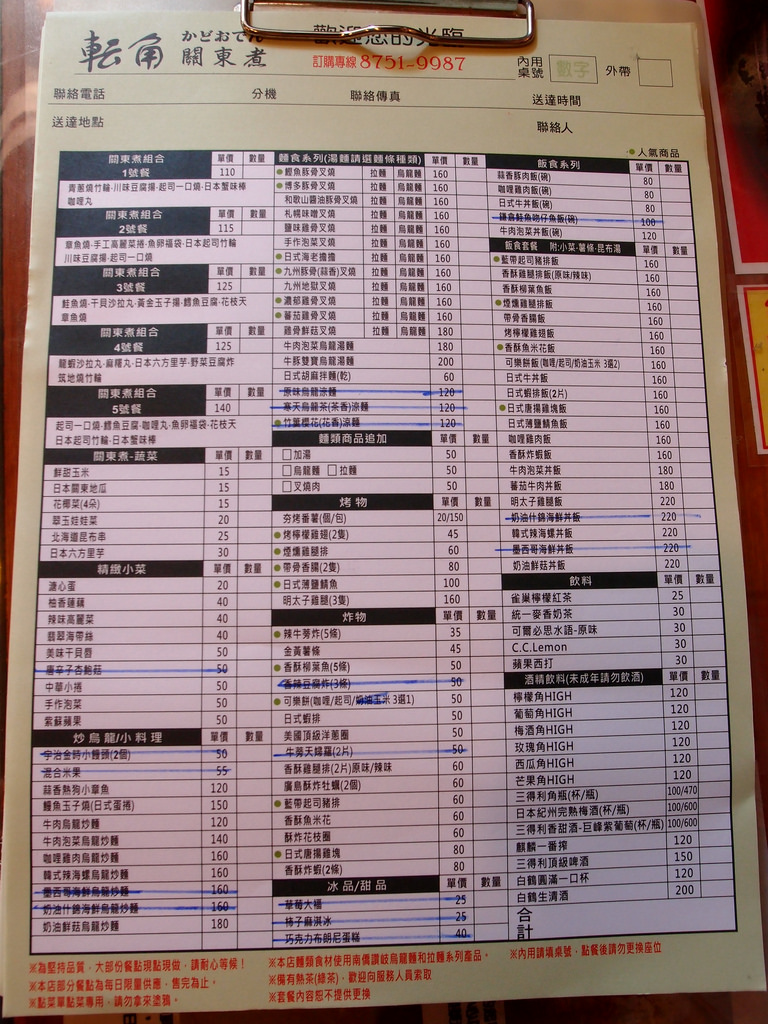 転角
かどおでん
關東煮
歡迎您的光臨
訂購專線 8751-9987
內用桌號 數字 外帶
聯絡電話 分機 聯絡傳真 送達時間
送達地點 聯絡人
●人氣商品
關東煮組合 單價 數量
1號餐 110
青蔥燒竹輪·川味豆腐揚·起司一口燒·日本蟹味棒
咖哩丸
關東煮組合 單價 數量
2號餐 115
章魚燒·手工高麗菜捲·魚卵福袋·日本起司竹輪
川味豆腐揚·起司一口燒
關東煮組合 單價 數量
3號餐 125
鮭魚燒·干貝沙拉丸·黃金玉子揚·鱈魚豆腐·花枝天
章魚燒
關東煮組合 單價 數量
4號餐 125
龍蝦沙拉丸·麻糬丸·日本六方里芋·野菜豆腐炸
筑地燒竹輪
關東煮組合 單價 數量
5號餐 140
起司一口燒·鱈魚豆腐·咖哩丸·魚卵福袋·花枝天
日本起司竹輪·日本蟹味棒
關東煮-蔬菜 單價 數量
鮮甜玉米 15
日本關東地瓜 15
花椰菜(4朵) 15
翠玉娃娃菜 20
北海道昆布串 25
日本六方里芋 30
精緻小菜 單價 數量
溏心蛋 20
柚香蓮藕 40
辣味高麗菜 40
翡翠海帶絲 40
美味干貝唇 50
唐辛子杏鮑菇 50
中華小捲 50
手作泡菜 50
紫蘇蘋果 50
炒烏龍/小料理 單價 數量
宇治金時小饅頭(2個) 50
混合米果 55
蒜香熱狗小章魚 120
鰻魚玉子燒(日式蛋捲) 150
牛肉烏龍炒麵 120
牛肉泡菜烏龍炒麵 140
咖哩雞肉烏龍炒麵 160
韓式辣海螺烏龍炒麵 160
墨西哥海鮮烏龍炒麵 160
奶油什錦海鮮烏龍炒麵 160
奶油鮮菇烏龍炒麵 180
麵食系列(湯麵請選麵條種類) 單價 數量
●鰹魚豚骨叉燒 拉麵 烏龍麵 160
●博多豚骨叉燒 拉麵 烏龍麵 160
和歌山醬油豚骨叉燒 拉麵 烏龍麵 160
札幌味噌叉燒 拉麵 烏龍麵 160
鹽味雞骨叉燒 拉麵 烏龍麵 160
手作泡菜叉燒 拉麵 烏龍麵 160
●日式海老擔擔 拉麵 烏龍麵 160
●九州豚骨(蒜香)叉燒 拉麵 烏龍麵 160
九州地獄叉燒 拉麵 烏龍麵 160
●濃郁雞骨叉燒 拉麵 烏龍麵 160
●蕃茄雞骨叉燒 拉麵 烏龍麵 160
雞骨鮮菇叉燒 拉麵 烏龍麵 180
牛肉泡菜烏龍湯麵 180
牛豚雙寶烏龍湯麵 200
日式胡麻拌麵(乾) 60
原味烏龍涼麵 120
寒天烏龍茶(茶香)涼麵 120
●竹葉櫻花(花香)涼麵 120
麵類商品追加 單價 數量
□加湯 50
□烏龍麵 □拉麵 50
□叉燒肉 50
烤物 單價 數量
夯烤番薯(個/包) 20/150
●烤檸檬雞翅(2隻) 45
●煙燻雞腿排 60
●帶骨香腸(2隻) 80
●日式薄鹽鯖魚 100
明太子雞腿(3隻) 160
炸物 單價 數量
●辣牛蒡炸(5條) 35
金黃薯條 45
●香酥柳葉魚(5條) 50
香辣豆腐炸(3條) 50
●可樂餅(咖哩/起司/奶油玉米 3選1) 50
日式蝦排 50
美國頂級洋蔥圈 50
牛蒡天婦羅(2片) 50
香酥雞腿排(2片)原味/辣味 60
廣島酥炸牡蠣(2個) 60
●藍帶起司豬排 60
香酥魚米花 60
酥炸花枝圈 60
●日式唐揚雞塊 80
香酥炸蝦(2條) 80
冰品/甜品 單價 數量
草莓大福 25
柿子麻淇冰 25
巧克力布朗尼蛋糕 40
飯食系列 單價 數量
蒜香豚肉飯(碗) 80
咖哩雞肉飯(碗) 80
日式牛丼飯(碗) 80
鎌倉鮭魚吻仔魚飯(碗) 100
牛肉泡菜丼飯(碗) 120
飯食套餐 附:小菜·薯條·昆布湯 單價 數量
●藍帶起司豬排飯 160
香酥雞腿排飯(原味/辣味) 160
香酥柳葉魚飯 160
●煙燻雞腿排飯 160
帶骨香腸飯 160
烤檸檬雞翅飯 160
●香酥魚米花飯 160
可樂餅飯(咖哩/起司/奶油玉米 3選2) 160
日式牛丼飯 160
日式蝦排飯(2片) 160
●日式唐揚雞塊飯 160
日式薄鹽鯖魚飯 160
咖哩雞肉飯 160
香酥炸蝦飯 160
牛肉泡菜丼飯 180
蕃茄牛肉丼飯 180
明太子雞腿飯 220
奶油什錦海鮮丼飯 220
韓式辣海螺丼飯 220
墨西哥海鮮丼飯 220
奶油鮮菇丼飯 220
飲料 單價 數量
雀巢檸檬紅茶 25
統一麥香奶茶 30
可爾必思水語-原味 30
C.C.Lemon 30
蘋果西打 30
酒精飲料(未成年請勿飲酒) 單價 數量
檸檬角HIGH 120
葡萄角HIGH 120
梅酒角HIGH 120
玫瑰角HIGH 120
西瓜角HIGH 120
芒果角HIGH 120
三得利角瓶(杯/瓶) 100/470
日本紀州完熟梅酒(杯/瓶) 100/600
三得利香甜酒-巨峰紫葡萄(杯/瓶) 100/600
麒麟一番搾 120
三得利頂級啤酒 150
白鶴圓滿一口杯 120
白鶴生清酒 200
合計
※為堅持品質，大部份餐點現點現做，請耐心等候！
※本店部分餐點為每日限量供應，售完為止。
※點菜單點菜專用，請勿拿來塗鴉。
※本店麵類食材使用南僑讚岐烏龍麵和拉麵系列產品。
※備有熱茶(綠茶)，歡迎向服務人員索取
※套餐內容恕不提供更換
※內用請填桌號，點餐後請勿更換座位